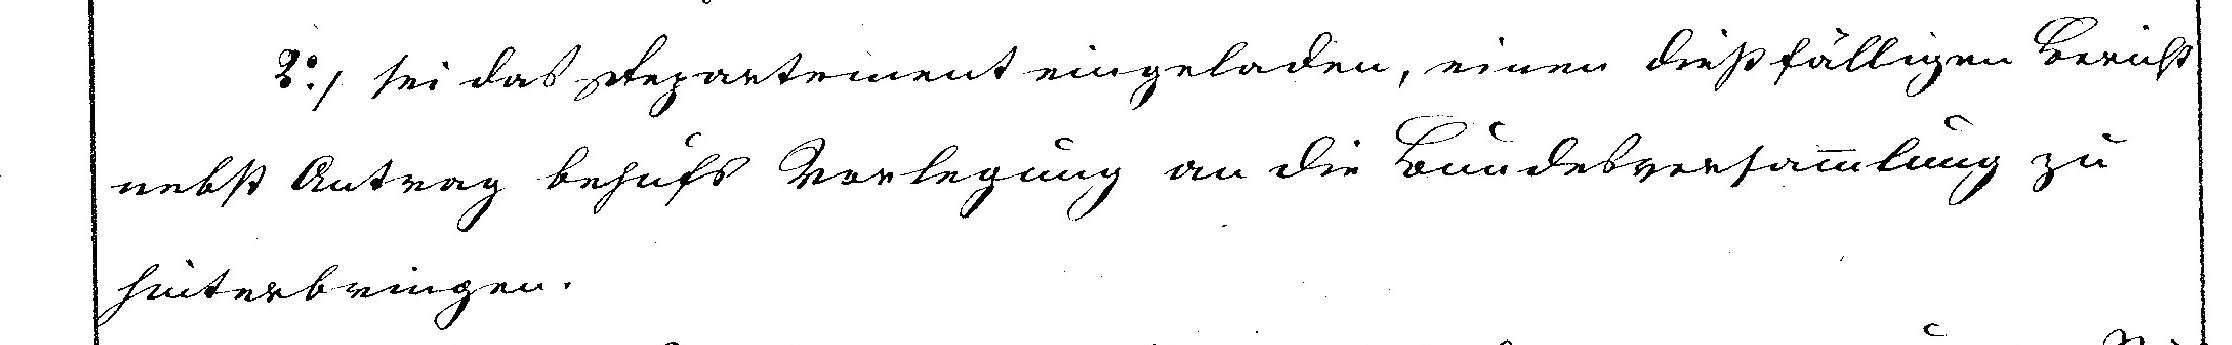 2º./ sei das Departement eingeladen, einen dießfälligen Bericht
nebst Antrag behufs Vorlegung an die Bundesversam̅lung zu
hinterbringen.